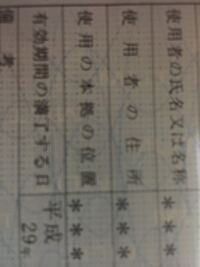 使用者の氏名又は名称 ***
使用者の住所 ***
使用の本拠の位置 ***
有効期間の満了する日 平成29年
備考